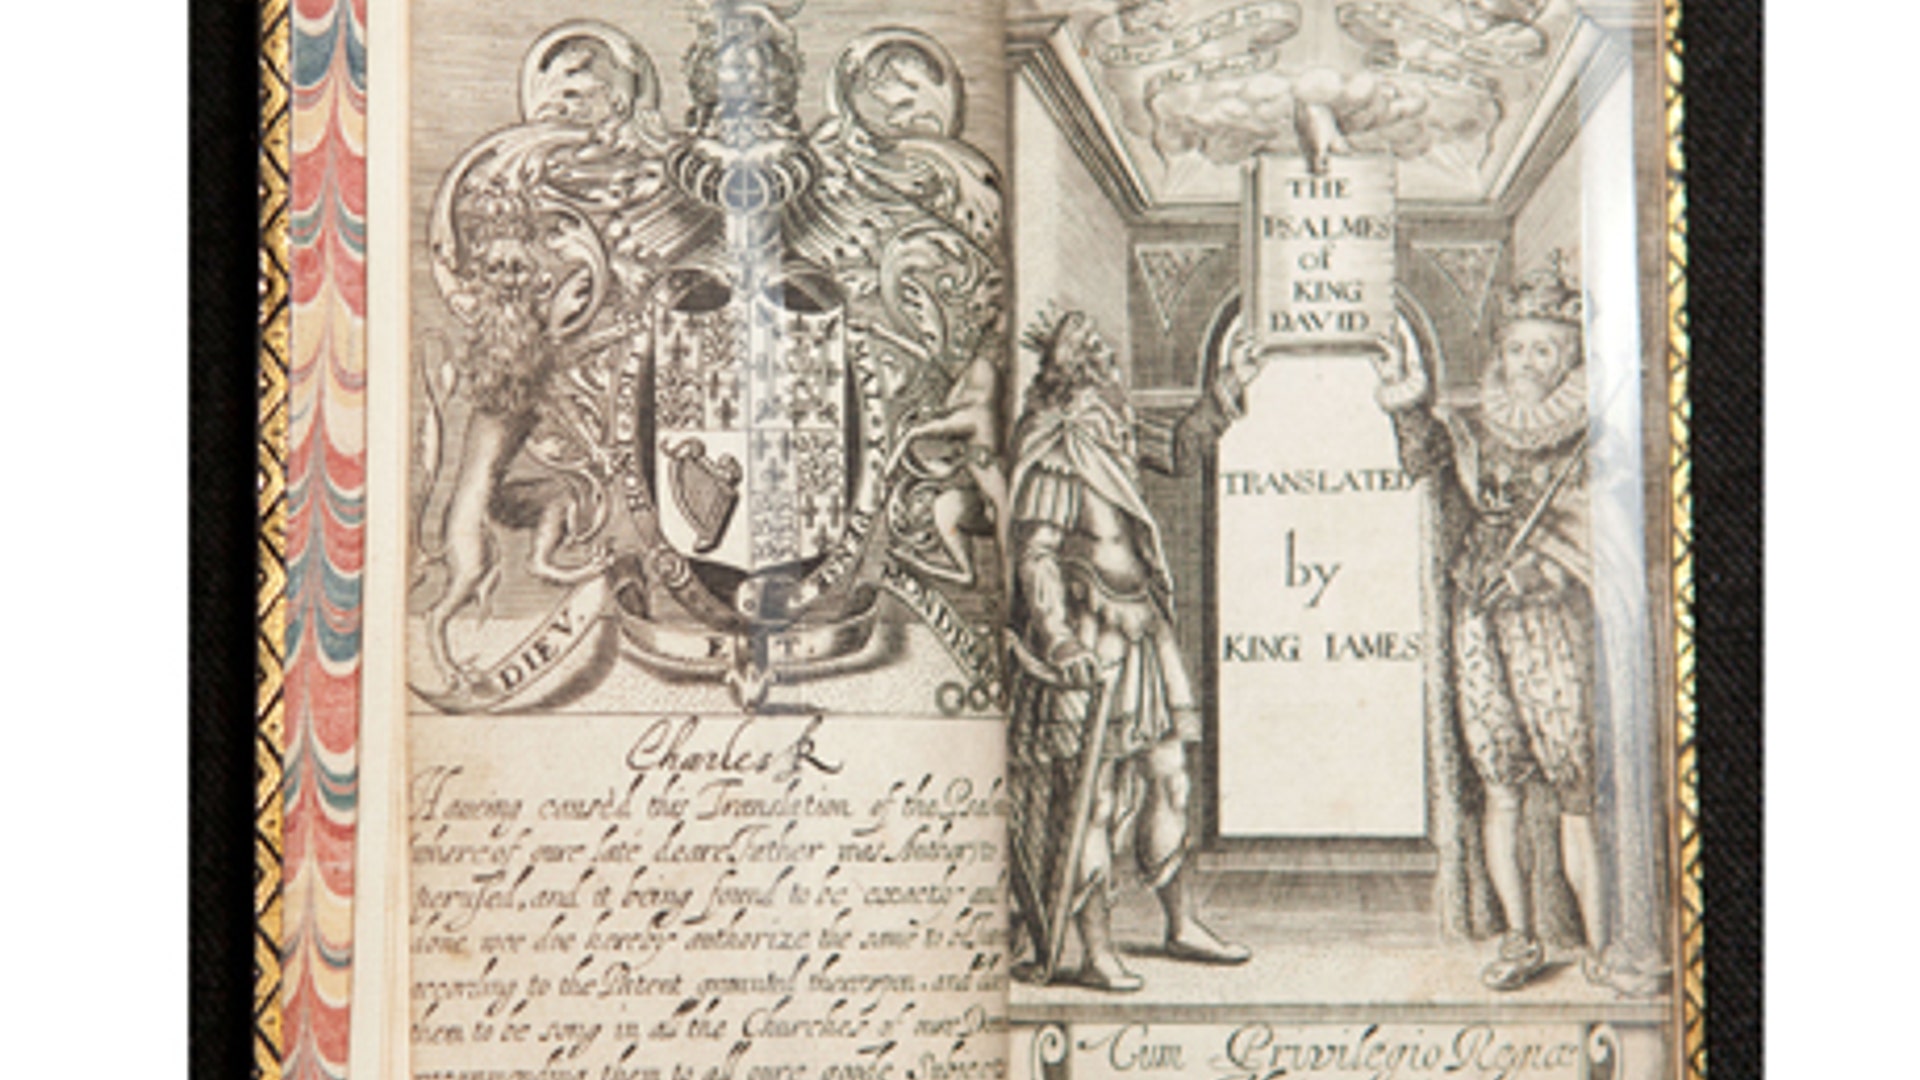 HONI
MAL Y
PENS
DIEV.
E T.
MONDROI
Charles R
Haveing caused this Translation of the Psal
whereof oure late deare Father was Author to
perused, and it being found to be exactly and
done, wee doe hereby authorize the same to be
according to the Patent graunted thereupon, and
them to be song in all the Churches of oure Do
recommending them to all oure goode Subjects
THE
PSALMES
of
KING
DAVID
TRANSLATED
by
KING IAMES
Cum Privilegio Regiæ